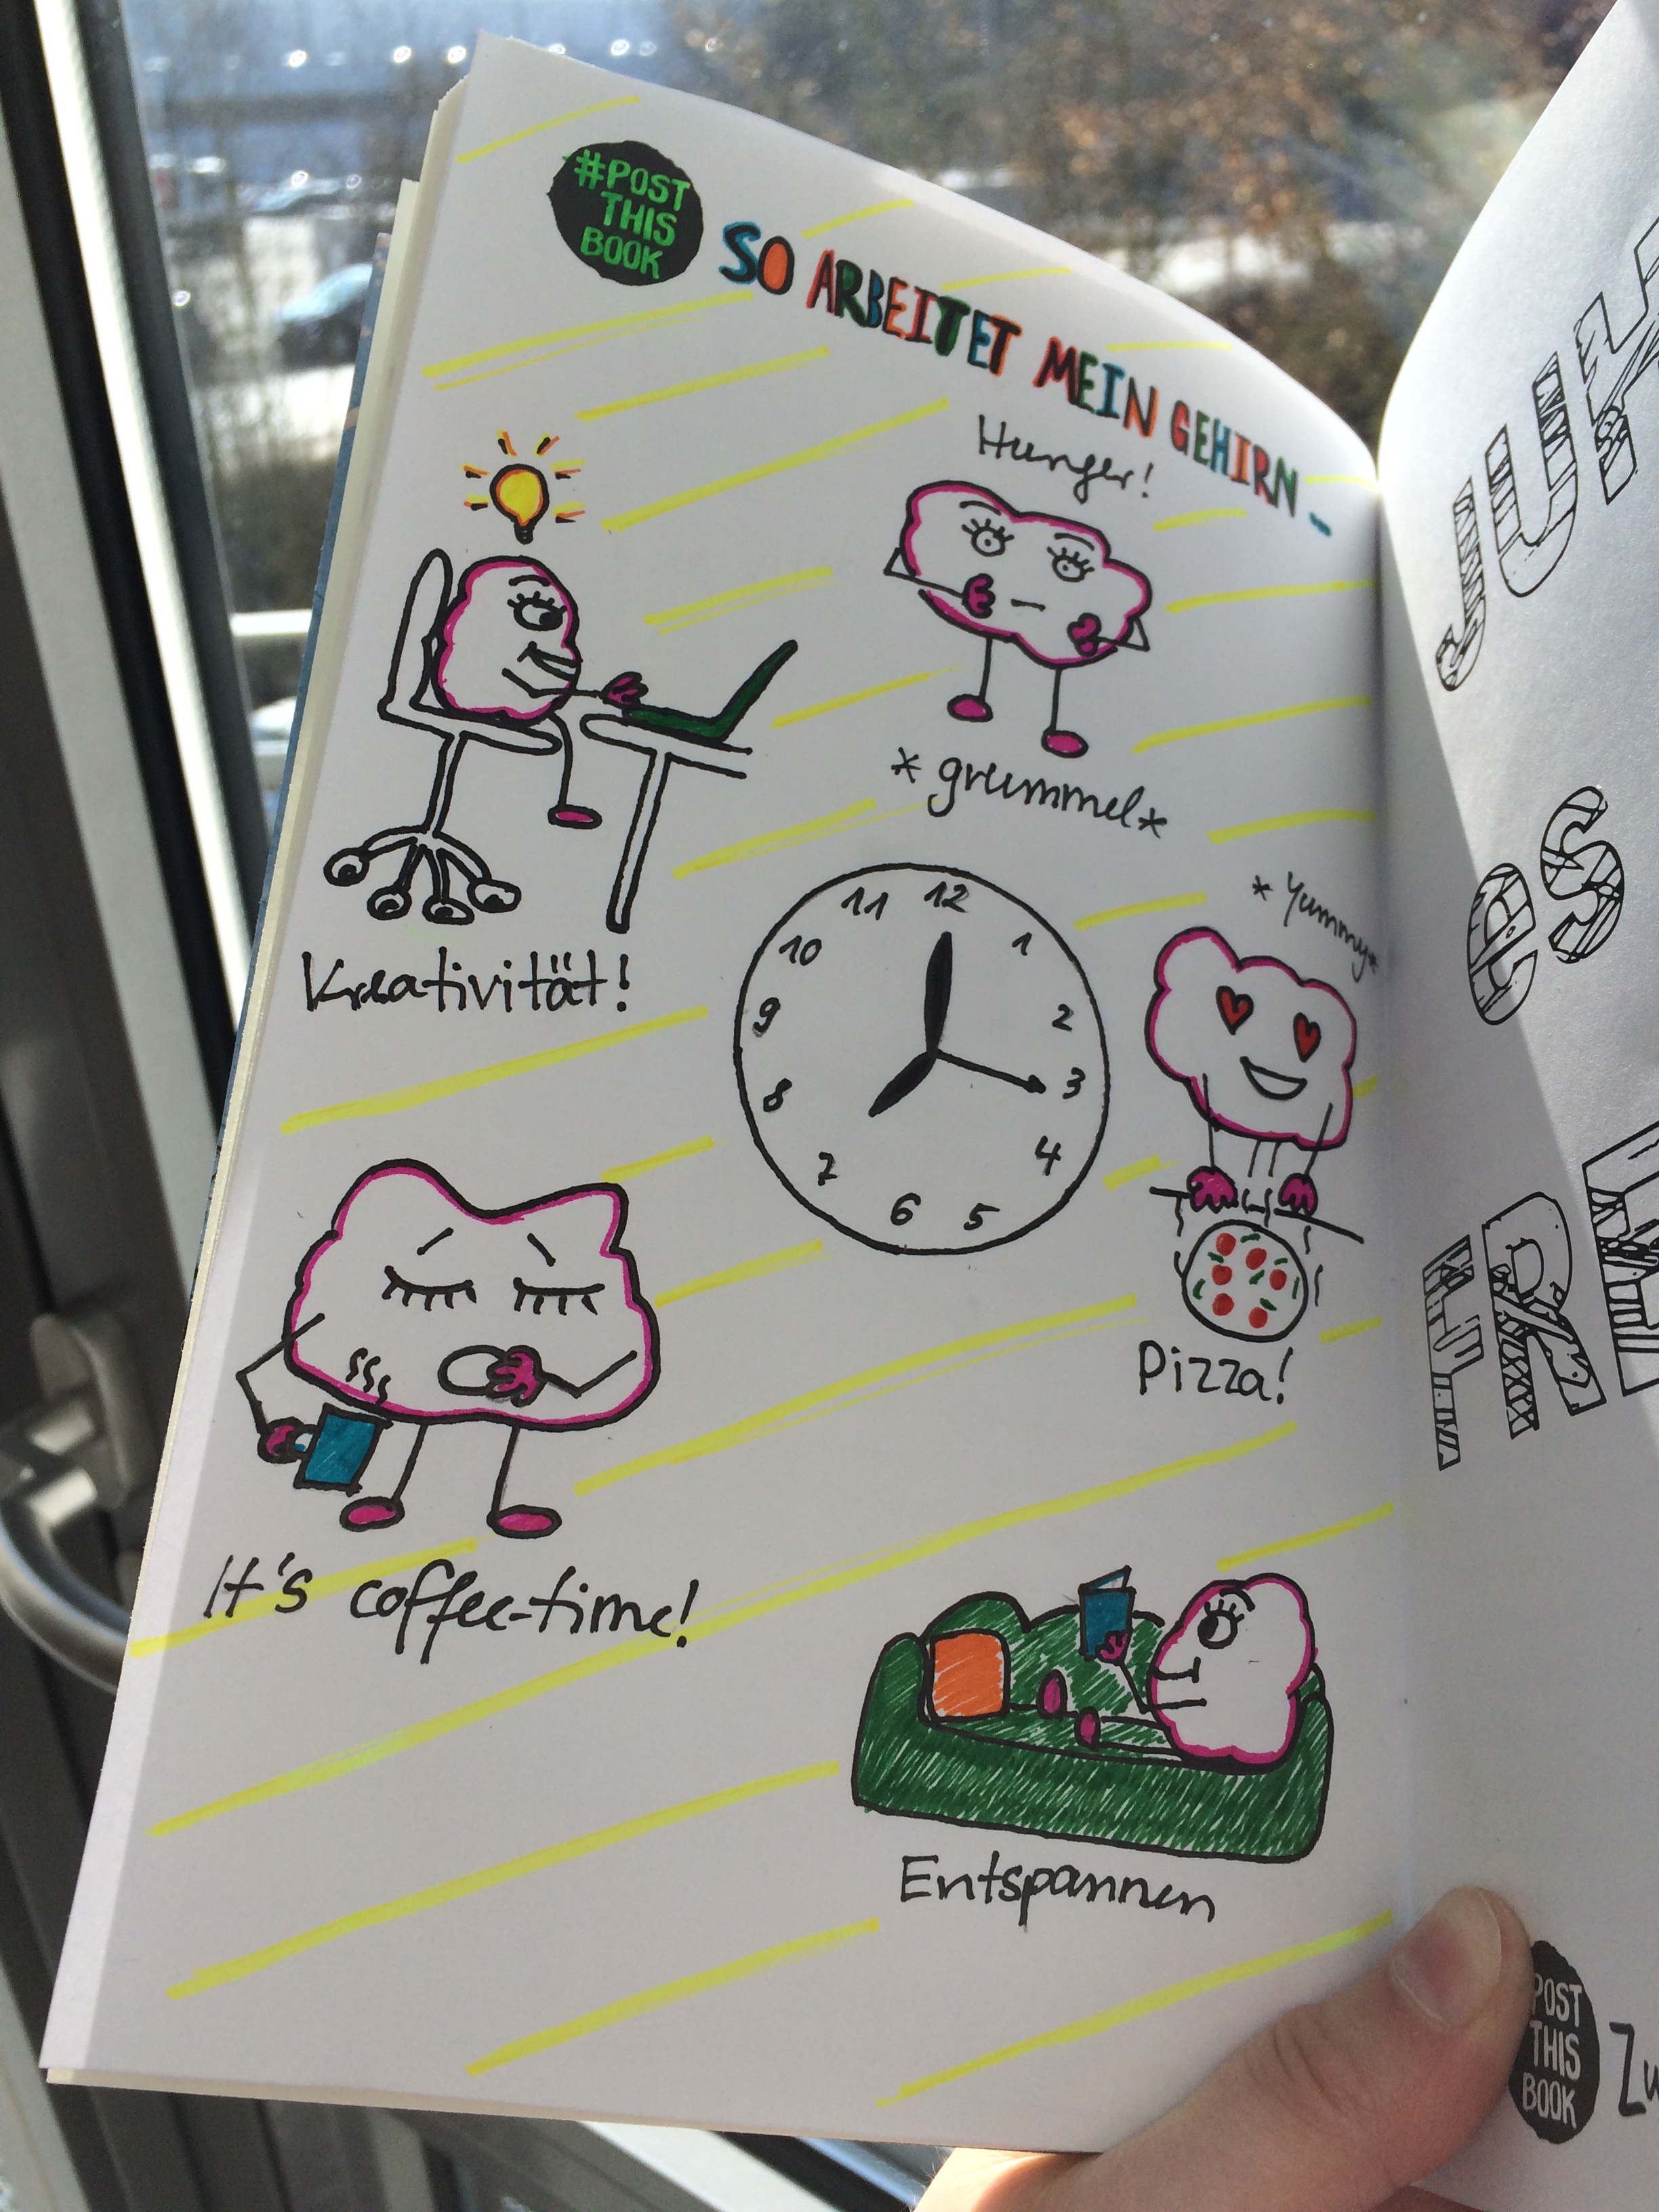 #POST
THIS
BOOK
SO ARBEITET MEIN GEHIRN ...
Hunger!
*grummel*
Kreativität!
*Yummy*
11 12 1
10 2
9 3
8 4
7 6 5
Pizza!
It's coffee-time!
Entspannen
POST
THIS
BOOK